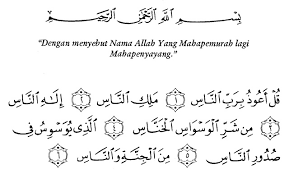 بِسْمِ اللَّهِ الرَّحْمَٰنِ الرَّحِيمِ
“Dengan menyebut Nama Allah Yang Mahapemurah lagi
Mahapenyayang.”
قُلْ أَعُوذُ بِرَبِّ النَّاسِ ١ مَلِكِ النَّاسِ ٢ إِلَٰهِ النَّاسِ
٣ مِن شَرِّ الْوَسْوَاسِ الْخَنَّاسِ ٤ الَّذِي يُوَسْوِسُ فِي
صُدُورِ النَّاسِ ٥ مِنَ الْجِنَّةِ وَالنَّاسِ ٦